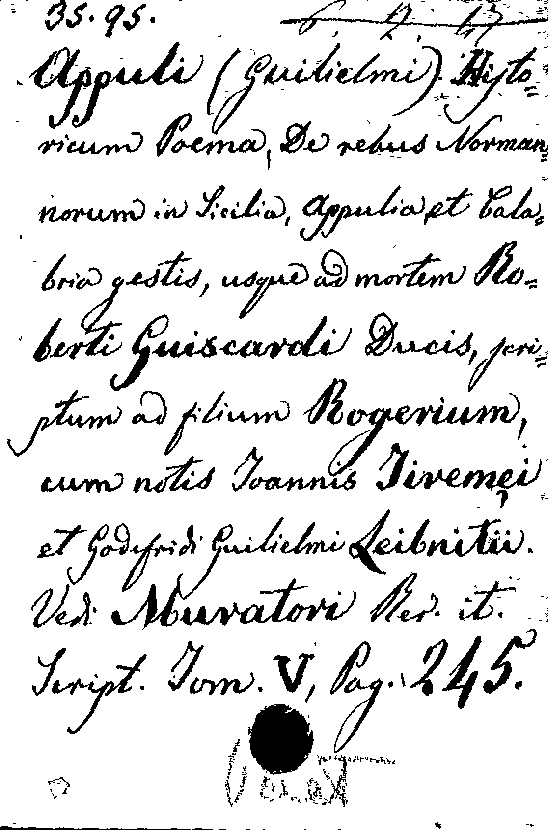 35. 95. 6. 2. 47
Appuli (Guilielmi). Hysto=
ricum Poema, De rebus Norman=
norum in Sicilia, Appulia, et Cala=
bria gestis, usque ad mortem Ro=
berti Guiscardi Ducis, scri=
ptum ad filium Rogerium,
cum notis Joannis Tiremei
et Godefridi Guilielmi Leibnitii.
Vedi Muratori Rer. it.
Script. Tom. V, Pag. 245.